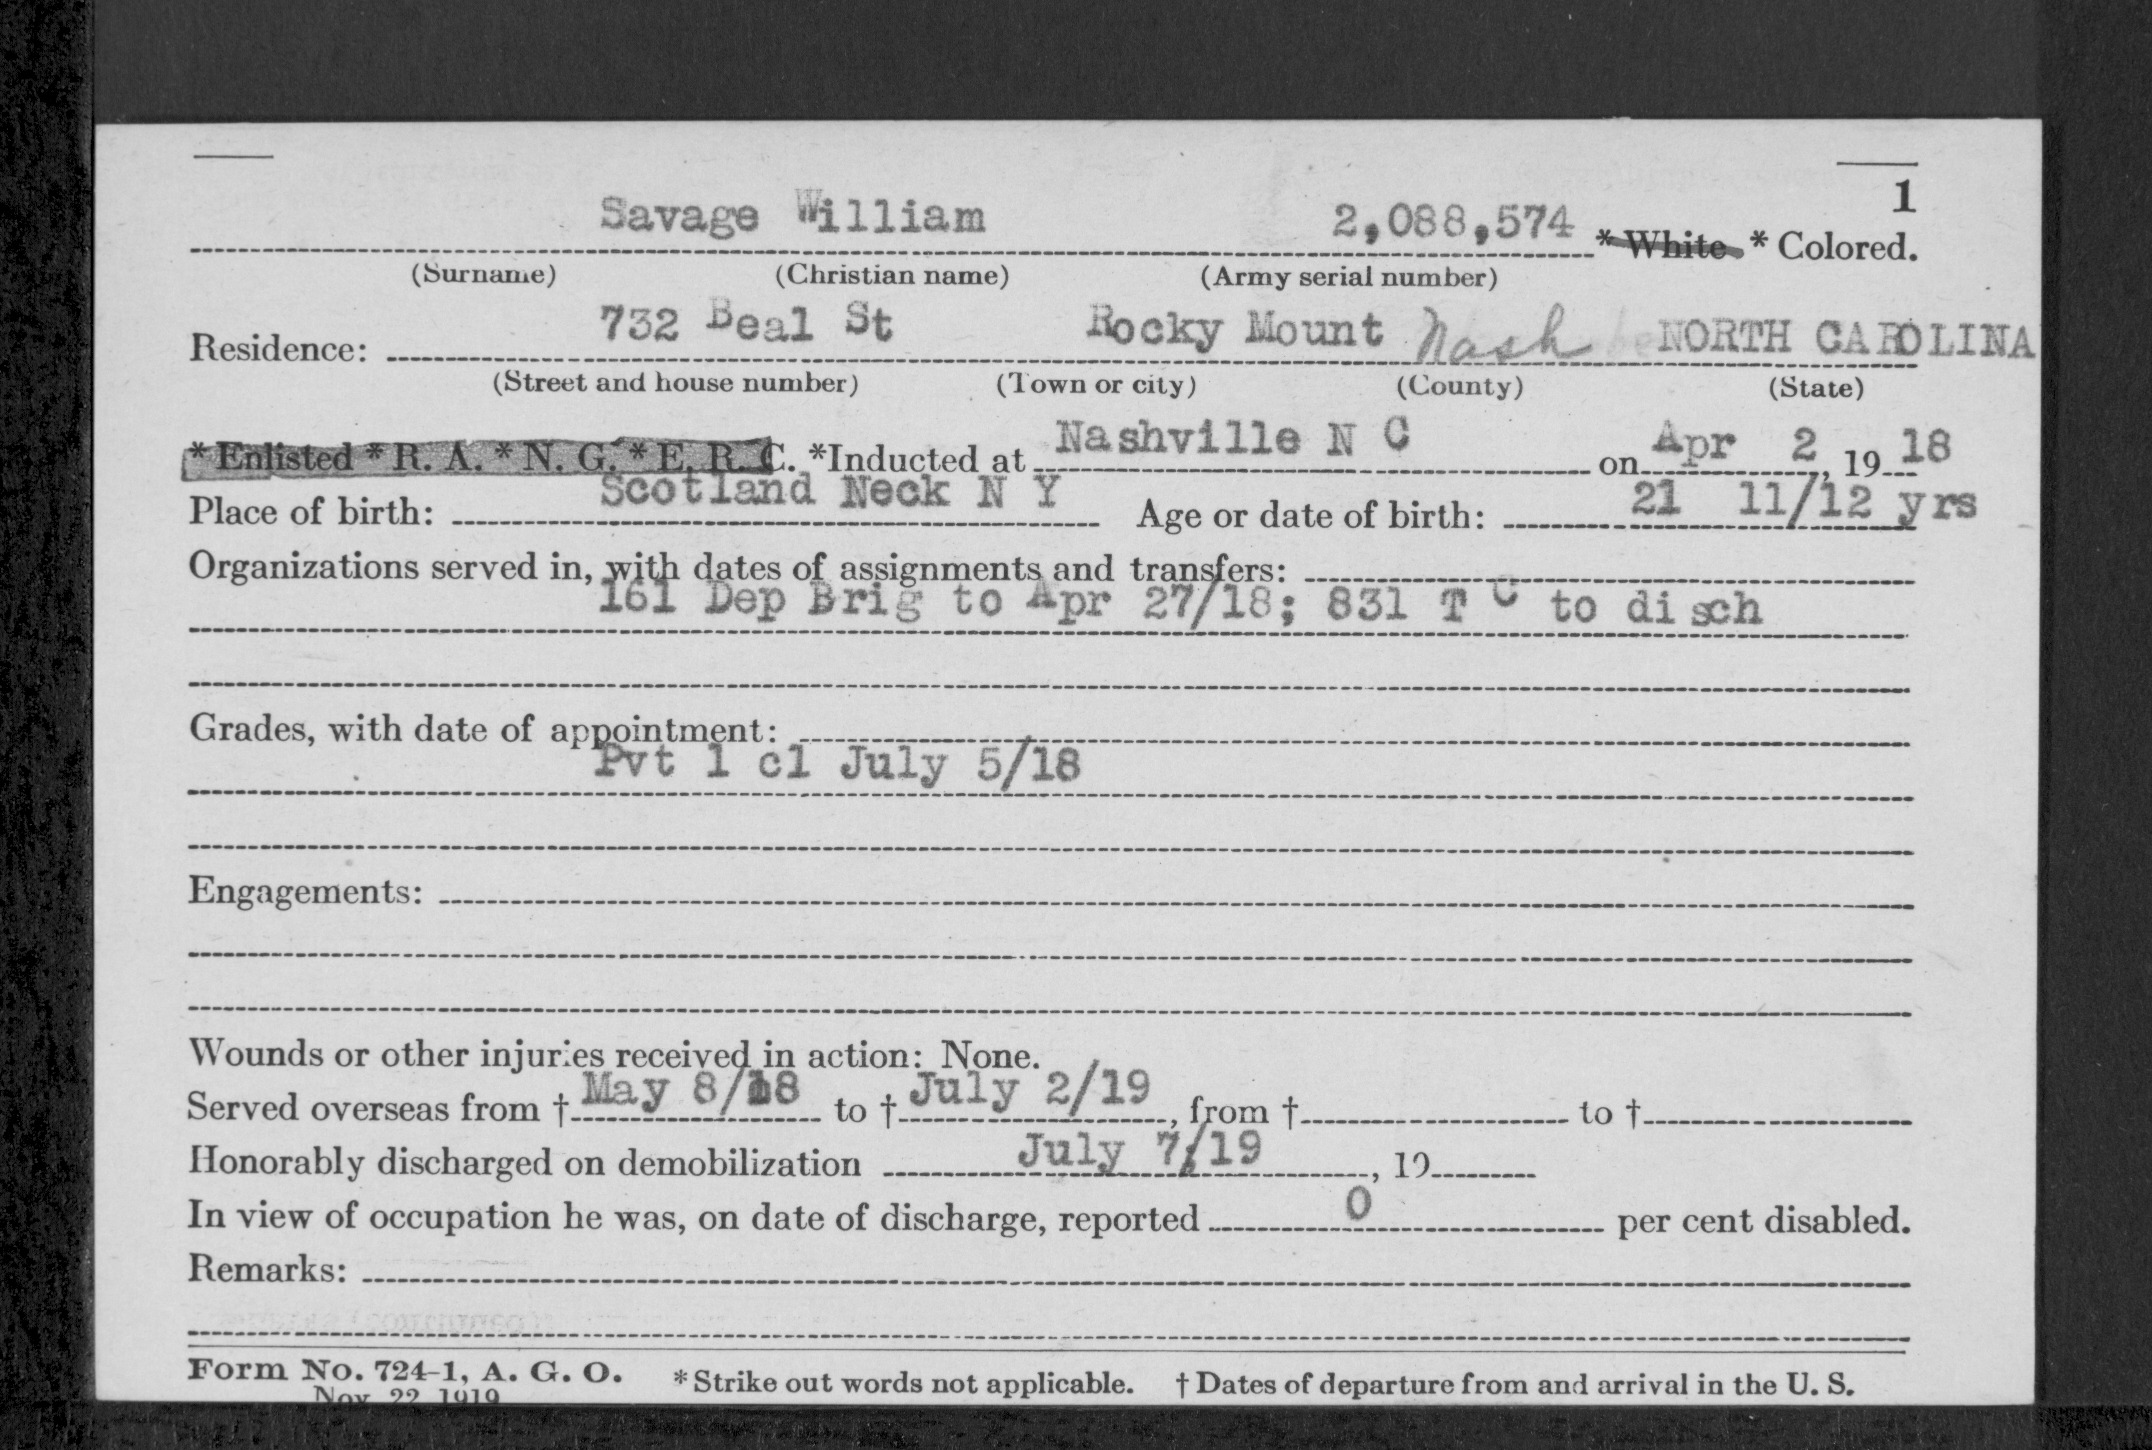 1
Savage William 2,088,574 * White * Colored.
(Surname) (Christian name) (Army serial number)
Residence: 732 Beal St Rocky Mount Nash NORTH CAROLINA
(Street and house number) (Town or city) (County) (State)
* Enlisted * R. A. * N. G. * E. R. C. *Inducted at Nashville N C on Apr 2, 19 18
Place of birth: Scotland Neck N Y Age or date of birth: 21 11/12 yrs
Organizations served in, with dates of assignments and transfers:
161 Dep Brig to Apr 27/18; 831 T C to disch
Grades, with date of appointment:
Pvt 1 cl July 5/18
Engagements:
Wounds or other injuries received in action: None.
Served overseas from † May 8/18 to † July 2/19, from † to †
Honorably discharged on demobilization July 7/19, 19
In view of occupation he was, on date of discharge, reported 0 per cent disabled.
Remarks:
Form No. 724-1, A. G. O. * Strike out words not applicable. † Dates of departure from and arrival in the U. S.
Nov. 22, 1919